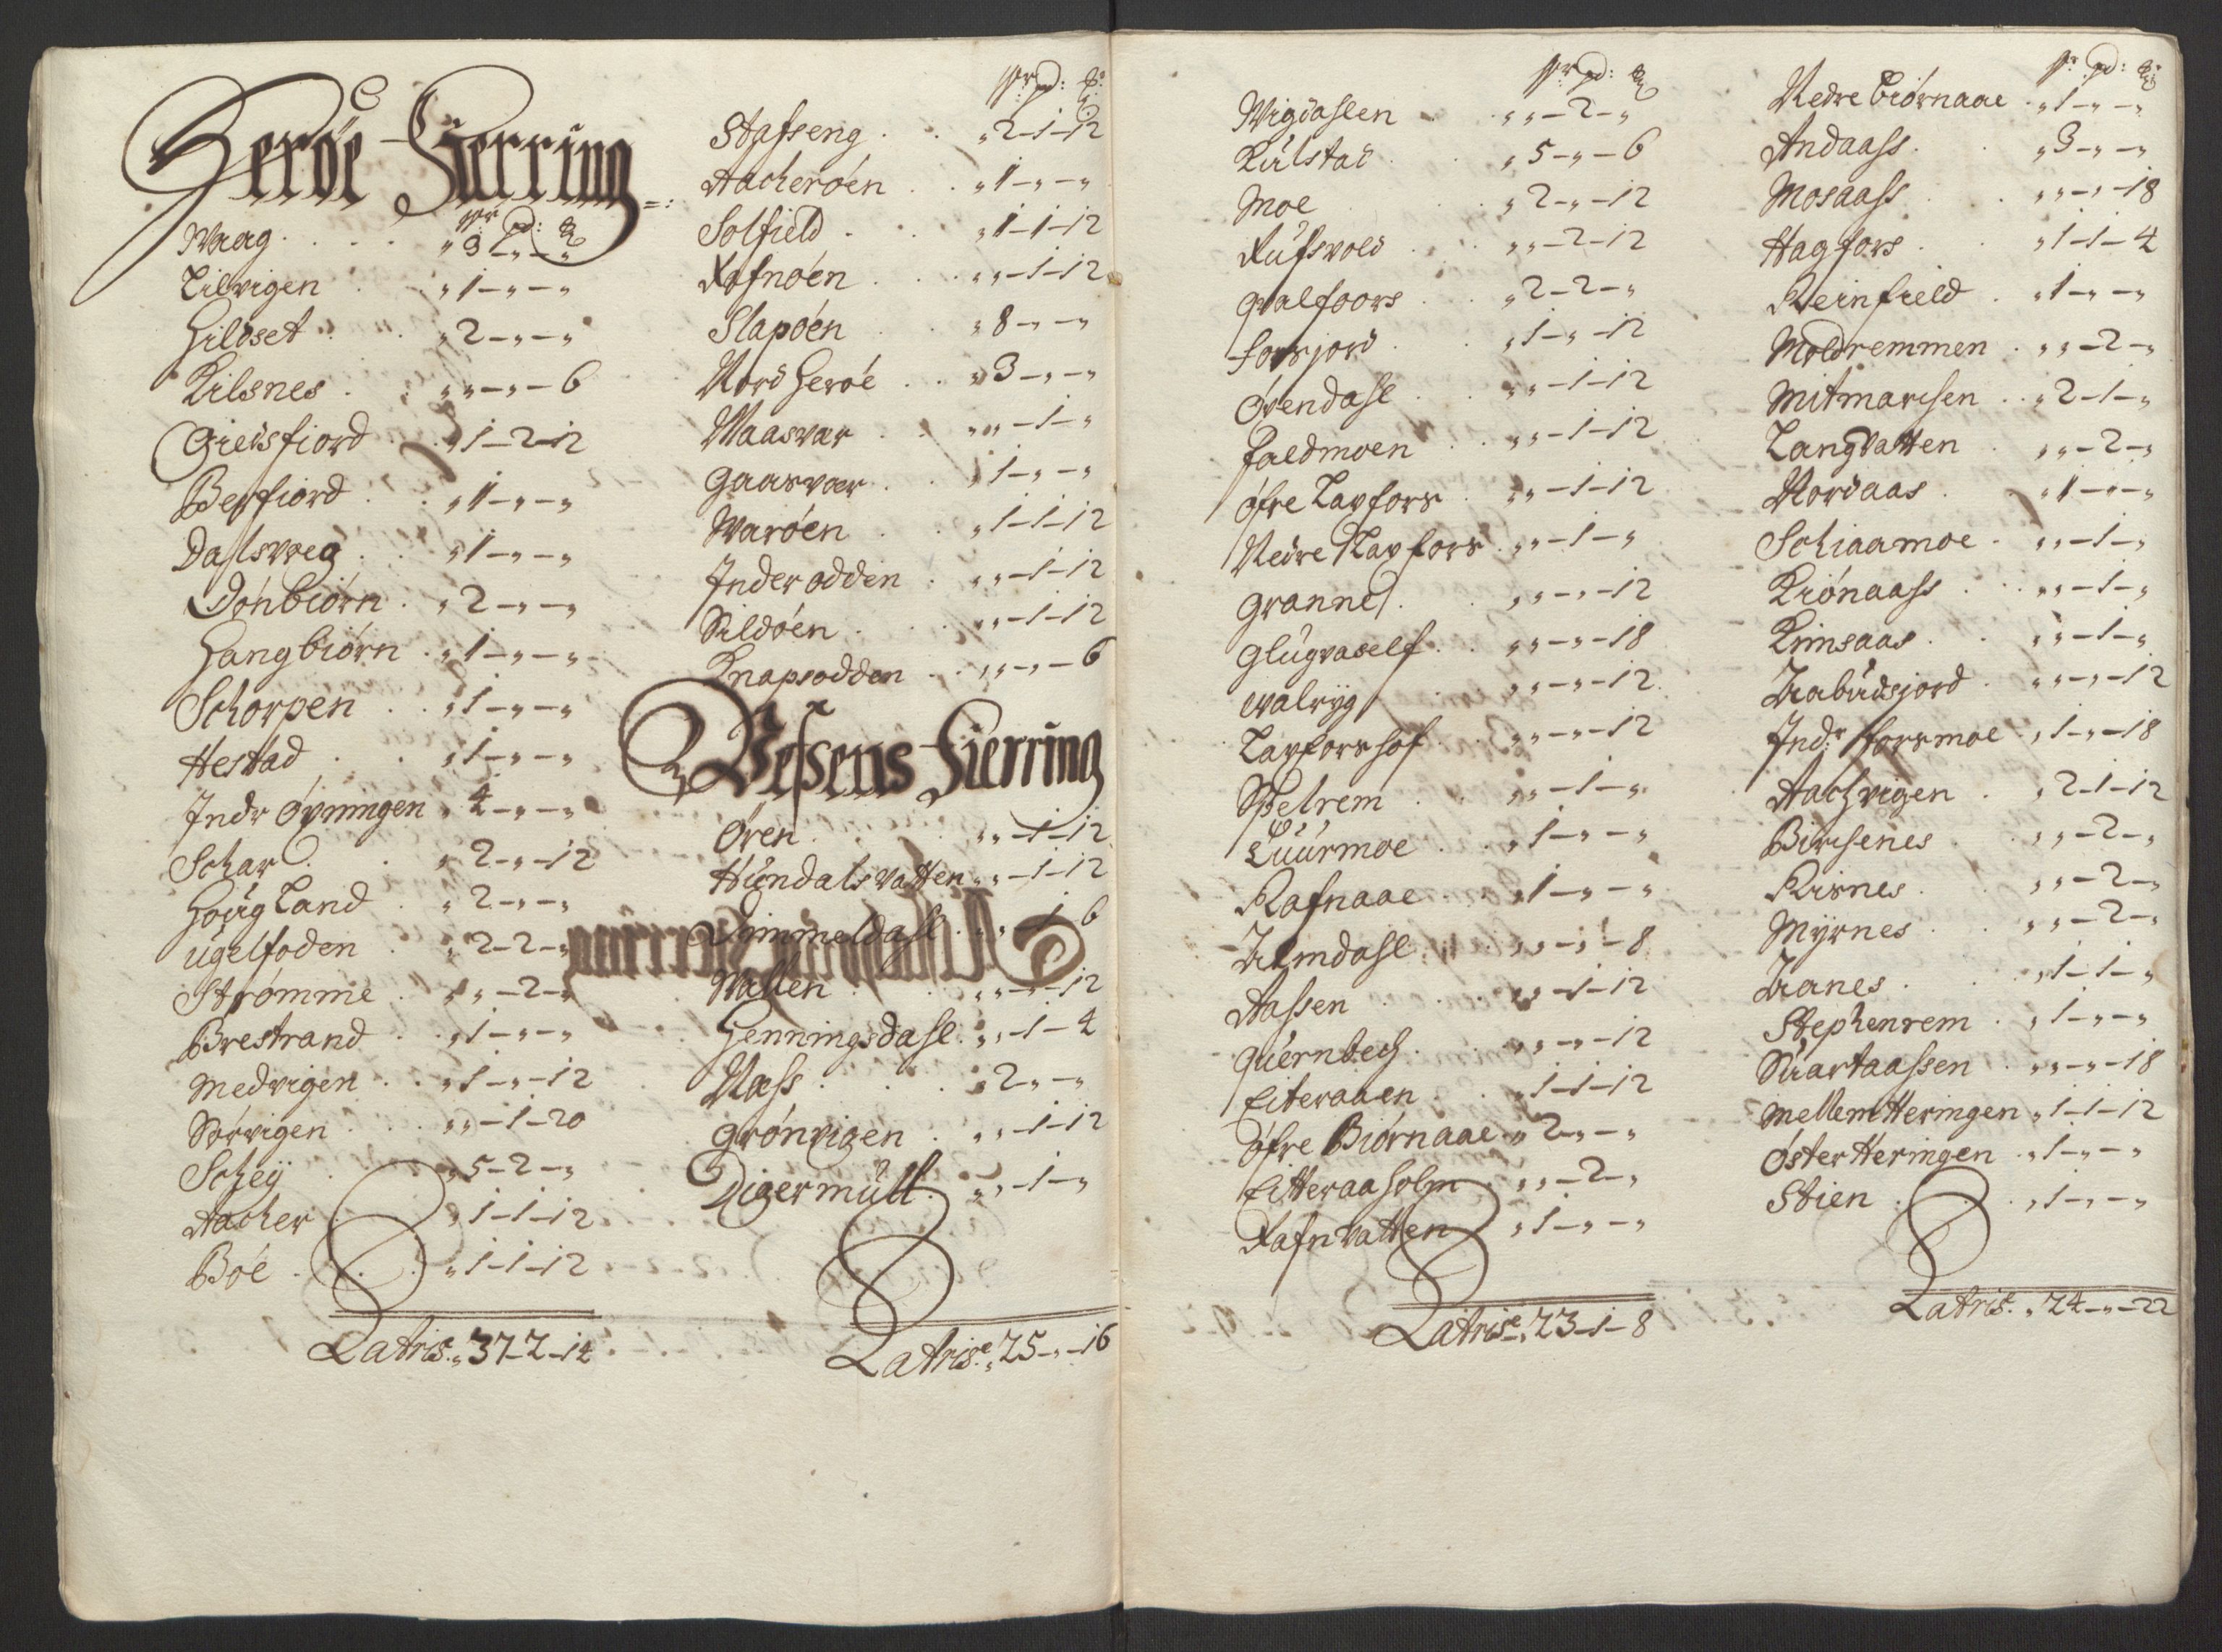 Herøe Fierring =:
wr pd: ℔
Waag . . . . „ 3 - „ - „
Lilvigen . . „ 1 - „ - „
Hildset . . „ 2 - „ - „
Kilsnes . . „ „ - „ - 6
Gieusfiord . . „ 1 - 2 - 12
Berfiord . . „ 1 - „ - „
Dalsvoeg . . „ 1 - „ - „
Dønbiørn . „ 2 - „ - „
Hangbiørn . „ 1 - „ - „
Schorpen . . „ 1 - „ - „
Hestad . . „ 1 - „ - „
Indr Øvningen „ 4 - „ - „
Schar . . „ 2 - „ - 12
Høug Land . „ 2 - „ - „
Ugelfoden . „ 2 - 2 - „
Strømme . „ „ - 2 - „
Brestrand . . „ 1 - „ - „
Medvigen . . „ 1 - „ - 12
Sørvigen . . „ „ - 1 - 20
Scheij . „ 5 - 2 - „
Aacher . „ 1 - 1 - 12
Bøe . . . „ 1 - 1 - 12
Latris: „ 37 - 2 - 14
wr pd: ℔:
Stafseng . . „ 2 - 1 - 12
Aacherøen . . „ 1 - „ - „
Solfield . . „ 1 - 1 - 12
Rafnøen . . „ „ - 1 - 12
Slapøen . . „ 8 - „ - „
Nord Herøe . . „ 3 - „ - „
Maasvær . . „ „ - 1 - „
Gaasvær . . „ 1 - „ - „
Warøen . . „ 1 - 1 - 12
Inder odden . „ „ - 1 - 12
Sildøen . . „ „ - 1 - 12
Knapsodden . . „ „ - „ - 6
Wefsens Fierring
Øren . . „ „ - 1 - 12
Hundalsvatten „ „ - 1 - 12
Simmeldahl . „ „ - 1 - 6
Wallen . . „ „ - „ - 12
Henningsdahl . „ „ - 1 - 4
Næss . . . „ 2 - „ - „
Grønvigen . „ „ - 1 - 12
Digermult . „ „ - 1 - „
Latris:e „ 25 - „ - 16
wr pd: ℔
Wigdahlen . . „ „ - 2 - „
Kulstad . . „ 5 - „ - 6
Moe . . „ 2 - „ - 12
Kufsvold . . „ „ - 2 - 12
Qvalfoors . . „ 2 - 2 - „
Forsjord . . „ 1 - „ - 12
Øvendahl . . „ „ - 1 - 12
Faldmoen . . „ „ - 1 - 12
Øfre Laxfors . „ „ - 1 - 12
Nedre Laxfors . „ „ - 1 - „
Granne . . „ „ - „ - 12
Glugvaself . . „ „ - „ - 18
Walryg . . „ „ - „ - 12
Laxforshof . „ „ - „ - 12
Spelrem . . „ „ - 1 - „
Luurmoe . . „ 1 - „ - „
Rafnaae . . „ 1 - „ - „
Almdahl . „ „ - „ - 8
Aassen . . „ „ - 1 - 12
Quernbech . . „ „ - „ - 12
Eiteraaen . . „ 1 - 1 - 12
Øfre Biørnaae „ 2 - „ - „
Eitteraaholm . „ „ - 2 - „
Rafnvatten „ 1 - „ - „
Latris:e „ 23 - 1 - 8
wr pd: ℔
Nedre Biørnaae . „ 1 - „ - „
Andaass . . „ 3 - „ - „
Mosaass . . „ „ - „ - 18
Hagfors . . „ 1 - 1 - 4
Reinfield . „ 1 - „ - „
Moldremmen . „ „ - 2 - „
Mitmarchen . . „ 2 - 1 - „
Langvatten . „ „ - 2 - „
Nordaas . . „ 1 - „ - „
Schiaamoe . „ „ - 1 - „
Kiønaass . . „ „ - 1 - „
Kimsaas . . „ „ - 1 - „
Trabudsjord . „ „ - „ - 12
Indr Forsmoe . „ 1 - „ - 18
Aachvigen . „ 2 - 1 - 12
Birchenes . „ „ - 2 - „
Risnes . . „ „ - 2 - „
Myrnes . . „ „ - 2 - „
Zranes . . „ 1 - 1 - „
Stephenrem . „ 1 - „ - „
Suartaassen . „ „ - „ - 18
Mellem Heringen „ 1 - 1 - 12
Øster Heringen . „ 1 - „ - „
Stien . . „ 1 - „ - „
Latris: „ 24 - „ - 22